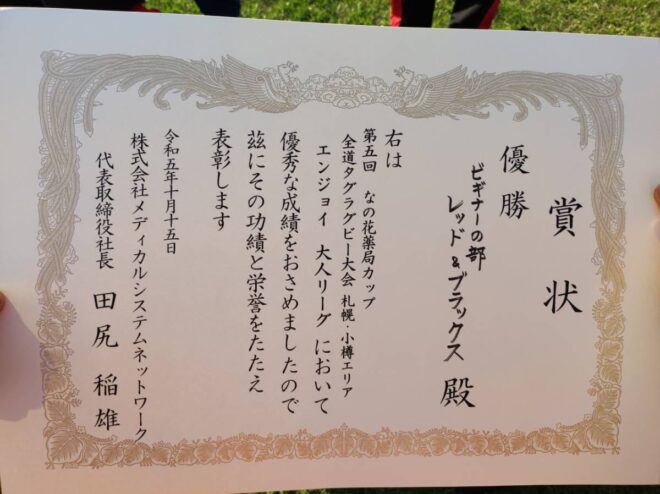 賞状
優勝
ビギナーの部
レッド&ブラックス 殿
右は
第五回 なの花薬局カップ
全道タグラグビー大会 札幌・小樽エリア
エンジョイ 大人リーグ において
優秀な成績をおさめましたので
茲にその功績と栄誉をたたえ
表彰します
令和五年十月十五日
株式会社メディカルシステムネットワーク
代表取締役社長 田尻 稲雄